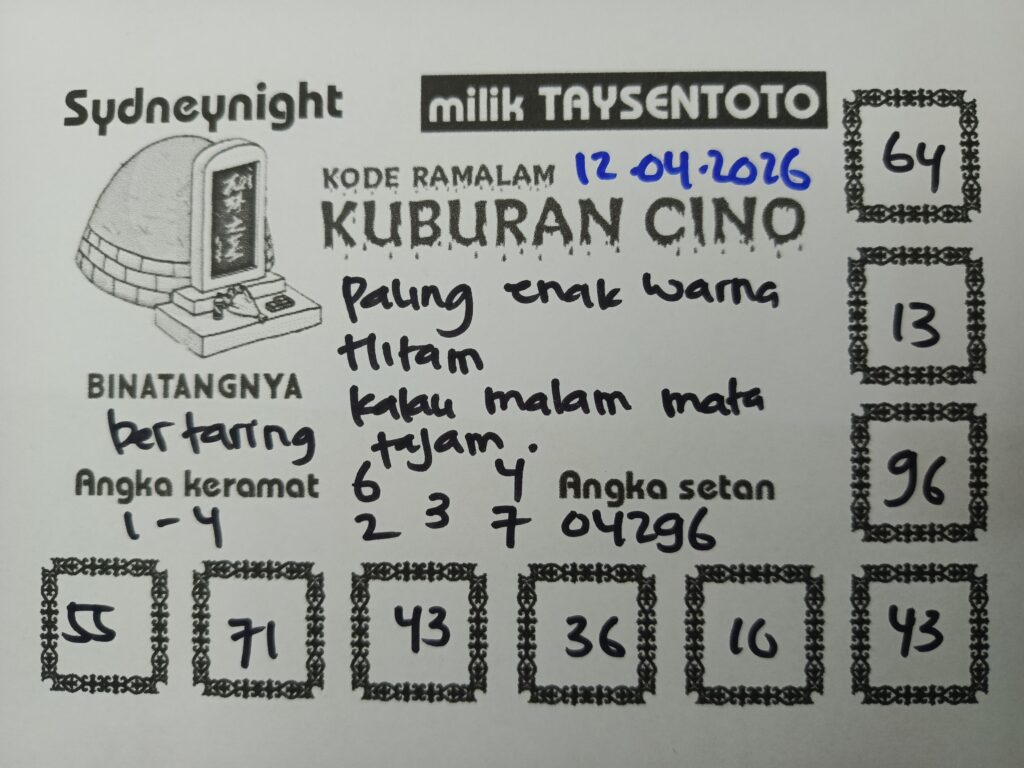 Sydneynight
milik TAYSENTOTO
KODE RAMALAM 12.04.2026
KUBURAN CINO
Paling enak warna
Hitam
kalau malam mata
tajam.
BINATANGNYA
bertaring
Angka keramat
1-4
6 4
2 3 7
Angka setan
04296
64
13
96
55 71 43 36 10 43